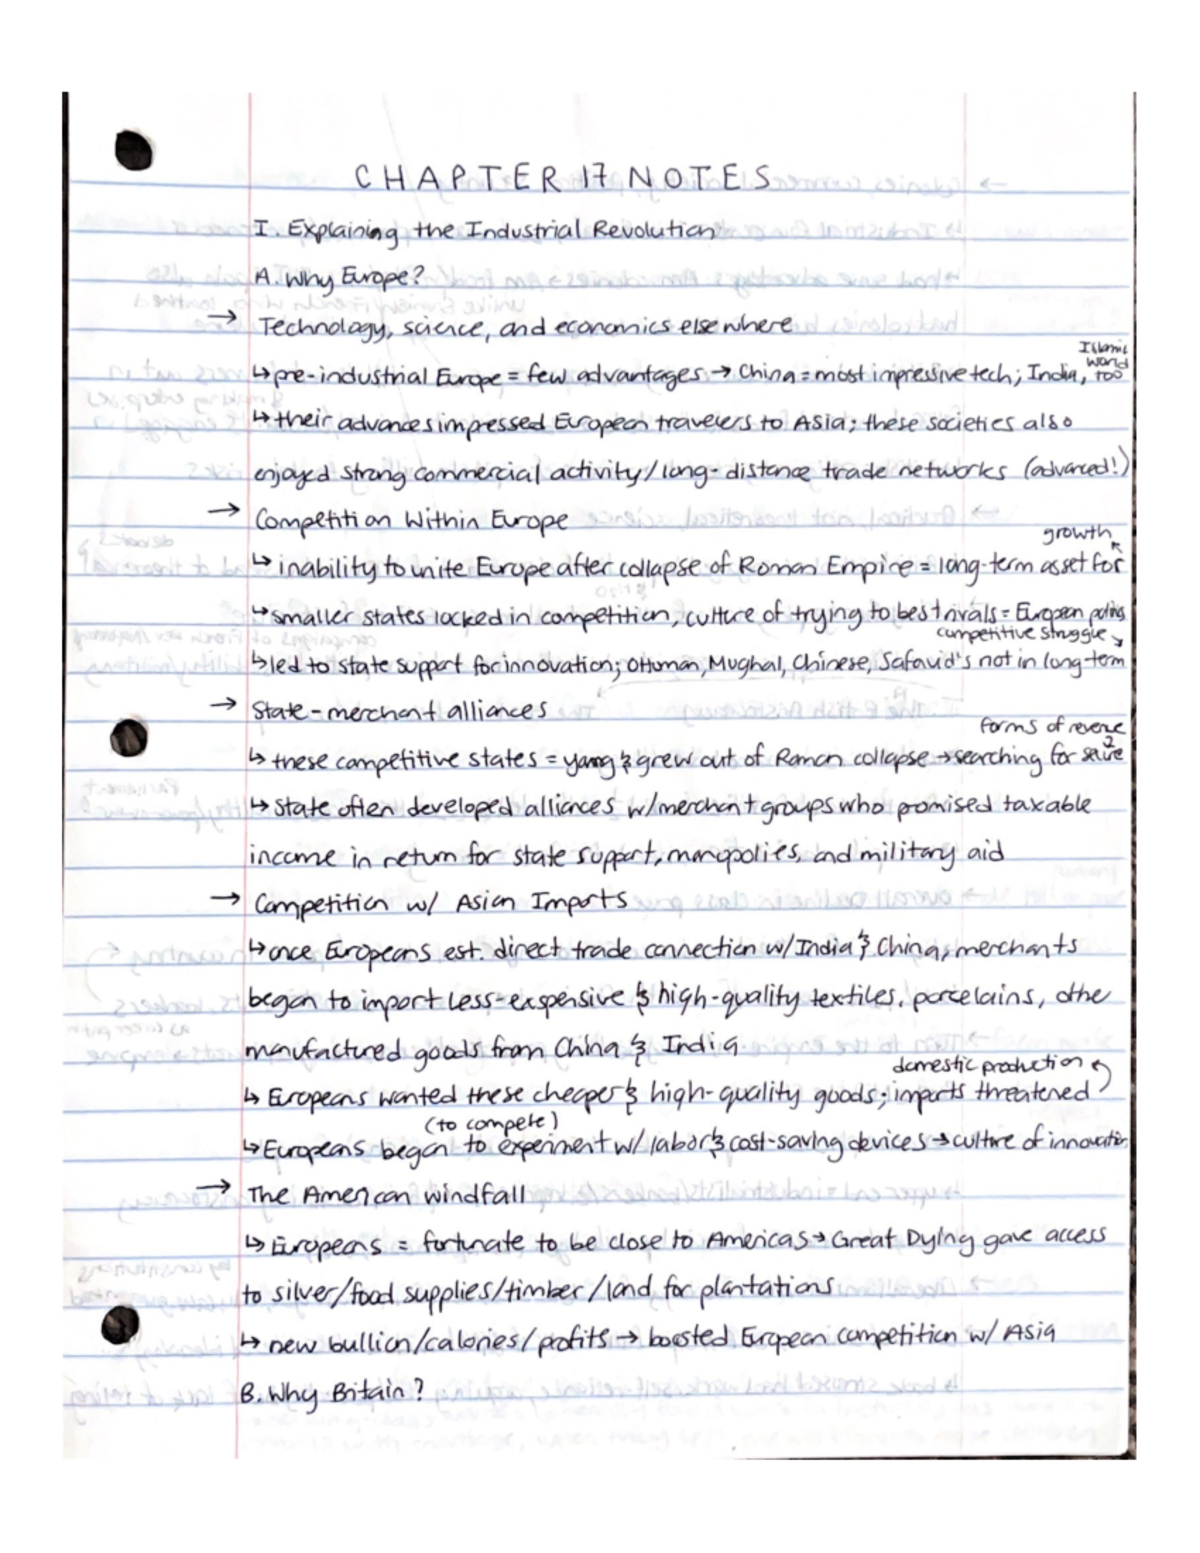 CHAPTER 17 NOTES
I. Explaining the Industrial Revolution
A. Why Europe?
→ Technology, science, and economics elsewhere
↳ pre-industrial Europe = few advantages → China = most impressive tech; India, Islamic world too
↳ their advances impressed European travelers to Asia; these societies also
enjoyed strong commercial activity/long-distance trade networks (advanced!)
→ Competition Within Europe
growth
↳ inability to unite Europe after collapse of Roman Empire = long-term asset for
↳ smaller states locked in competition, culture of trying to best rivals = European
competitive struggle
↳ led to state support for innovation; Ottoman, Mughal, Chinese, Safavid's not in long-term
→ State-merchant alliances
forms of revenue
↳ these competitive states = young & grew out of Roman collapse → searching for
↳ state often developed alliances w/merchant groups who promised taxable
income in return for state support, monopolies, and military aid
→ Competition w/ Asian Imports
↳ once Europeans est. direct trade connection w/India & China, merchants
began to import less-expensive & high-quality textiles, porcelains, othe
manufactured goods from China & India
domestic production
↳ Europeans wanted these cheaper & high-quality goods; imports threatened
(to compete)
↳ Europeans began to experiment w/ labor & cost-saving devices → culture of innovation
→ The American windfall
↳ Europeans = fortunate to be close to Americas → Great Dying gave access
to silver/food supplies/timber/land for plantations
↳ new bullion/calories/profits → boosted European competition w/ Asia
B. Why Britain?